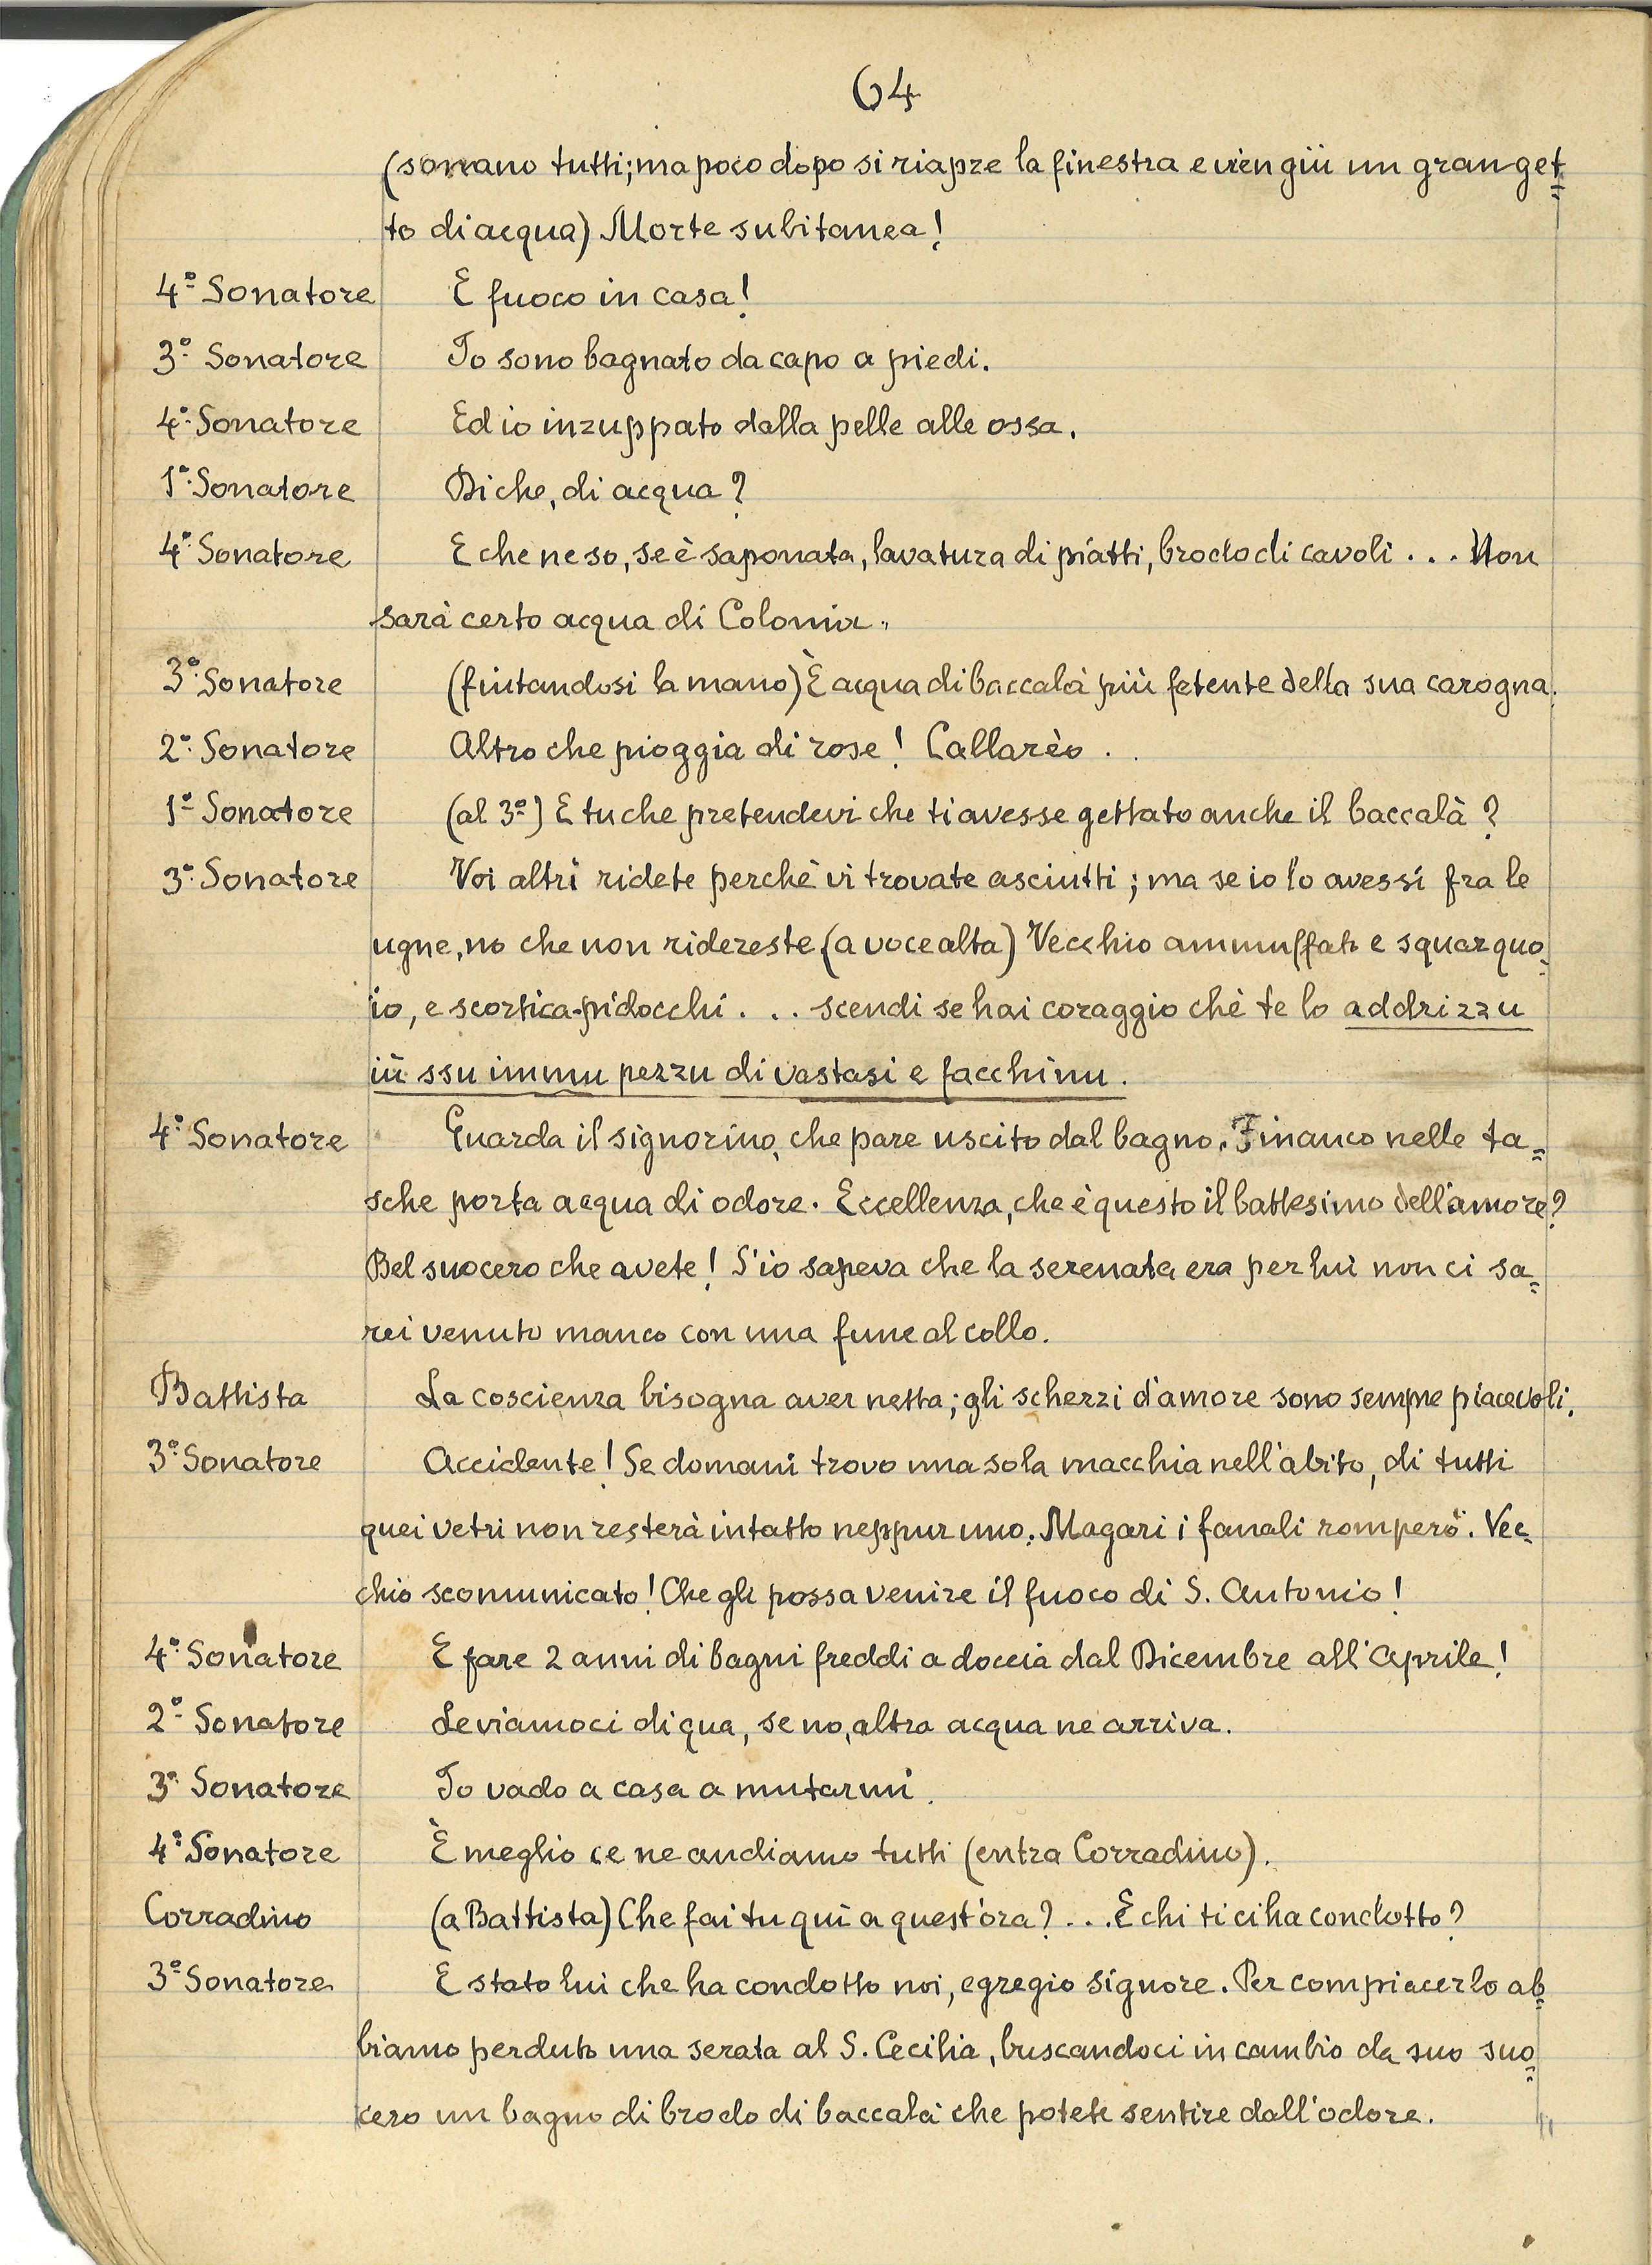 64
(sonano tutti; ma poco dopo si riapre la finestra e vien giù un gran get=
to di acqua) Morte subitanea!
4° Sonatore E fuoco in casa!
3° Sonatore Io sono bagnato da capo a piedi.
4° Sonatore Ed io inzuppato dalla pelle alle ossa.
1° Sonatore Di che, di acqua?
4° Sonatore E che ne so, se è saponata, lavatura di piatti, brodo di cavoli ... Non
sarà certo acqua di Colonia.
3° Sonatore (fiutandosi la mano) È acqua di baccalà più fetente della sua carogna.
2° Sonatore Altro che pioggia di rose! Callarèo ..
1° Sonatore (al 3°) E tu che pretendevi che ti avesse gettato anche il baccalà?
3° Sonatore Voi altri ridete perchè vi trovate asciutti; ma se io lo avessi fra le
ugne, no che non ridereste (a voce alta) Vecchio ammuffato e squarquo=
io, e scortica-pidocchi ... scendi se hai coraggio chè te lo addrizzu
iù ssu immu pezzu di vastasi e facchinu.
4° Sonatore Guarda il signorino, che pare uscito dal bagno. Financo nelle ta=
sche porta acqua di odore. Eccellenza, che è questo il battesimo dell'amore?
Bel suocero che avete! S'io sapeva che la serenata era per lui non ci sa=
rei venuto manco con una fune al collo.
Battista La coscienza bisogna aver netta; gli scherzi d'amore sono sempre piacevoli.
3° Sonatore Accidente! Se domani trovo una sola macchia nell'abito, di tutti
quei vetri non resterà intatto neppur uno. Magari i fanali romperò. Vec=
chio scomunicato! Che gli possa venire il fuoco di S. Antonio!
4° Sonatore E fare 2 anni di bagni freddi a doccia dal Dicembre all'Aprile!
2° Sonatore Leviamoci di qua, se no, altra acqua ne arriva.
3° Sonatore Io vado a casa a mutarmi.
4° Sonatore È meglio ce ne andiamo tutti (entra Corradino).
Corradino (a Battista) Che fai tu quì a quest'ora? ... E chi ti ci ha condotto?
3° Sonatore E stato lui che ha condotto noi, egregio signore. Per compiacerlo ab=
biamo perduto una serata al S. Cecilia, buscandoci in cambio da suo suo=
cero un bagno di brodo di baccalà che potete sentire dall'odore.